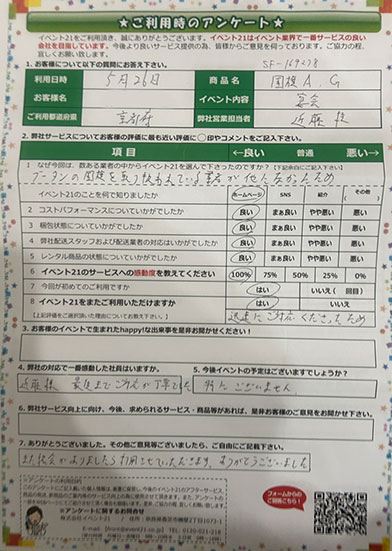 ★ご利用時のアンケート★
イベント21をご利用頂き、誠にありがとうございます。イベント21はイベント業界で一番サービスの良い
会社を目指しています。今後より良いサービス提供の為、皆様からご意見を伺っております。ご協力の程、
宜しくお願い致します。
1. お客様について以下の質問にお答え下さい。 SF-169278
利用日時 5月26日 商品名 国旗 A, G
お客様名 イベント内容 宴会
ご利用都道府県 京都府 弊社営業担当者 近藤 様
2. 弊社サービスについてお客様の評価に最も近い評価に○印やコメントをご記入下さい。
項目 ←良い 普通 悪い→
1 なぜ今回は、数ある業者の中からイベント21を選んで下さったのですか?【下記余白にご記入下さい】
ブータンの国旗を取り扱っている業者が他になかったため
イベント21のことを何で知りましたか ホームページ SNS 紹介 その他
2 コストパフォーマンスについていかがでしたか 良い まぁ良い やや悪い 悪い
3 梱包状態についていかがでしたか 良い まぁ良い やや悪い 悪い
4 弊社配送スタッフおよび配送業者の対応はいかがでしたか 良い まぁ良い やや悪い 悪い
5 レンタル商品の状態についていかがでしたか 良い まぁ良い やや悪い 悪い
6 イベント21のサービスへの感動度を教えてください 100% 75% 50% 25% 0%
7 今回が初めてのご利用ですか はい いいえ( 回目)
8 イベント21をまたご利用いただけますか はい いいえ
【上記評価をご選択頂いた理由についてお答え下さい。】 迅速にご対応くださったため
3. お客様のイベントで生まれたhappy!な出来事を是非お聞かせください!
4. 弊社の対応で一番感動した社員はいますか。 5. 今後イベントの予定はございますでしょうか?
近藤様 最後までご対応が丁寧でした 特にございません。
6. 弊社サービス向上に向け、今後、求められるサービス・商品等があれば、是非お客様のご意見をお聞かせ下さい。
7. ありがとうございました。その他ご意見等ございましたら、ご自由にご記載下さい。
また機会がありましたら利用させていただきます。ありがとうございました
※アンケートの利用目的
※アンケートに関するお問合せ
株式会社イベント21
フォームからの
ご回答はこちら!